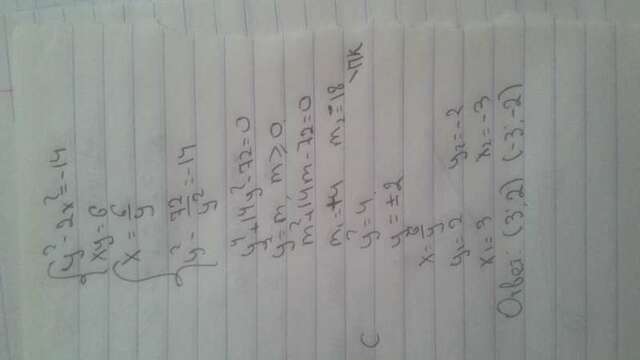 y² - 2x² = -14
xy = 6
x = 6/y
y² - 72/y² = -14
y⁴ + 14y² - 72 = 0
y² = m, m ≥ 0
m² + 14m - 72 = 0
m₁ = +4 m₂ = -18
ПК
y² = 4
C
y = ±2
x = 6/y
y₁ = 2 y₂ = -2
x₁ = 3 x₂ = -3
Ответ: (3; 2) (-3; -2)